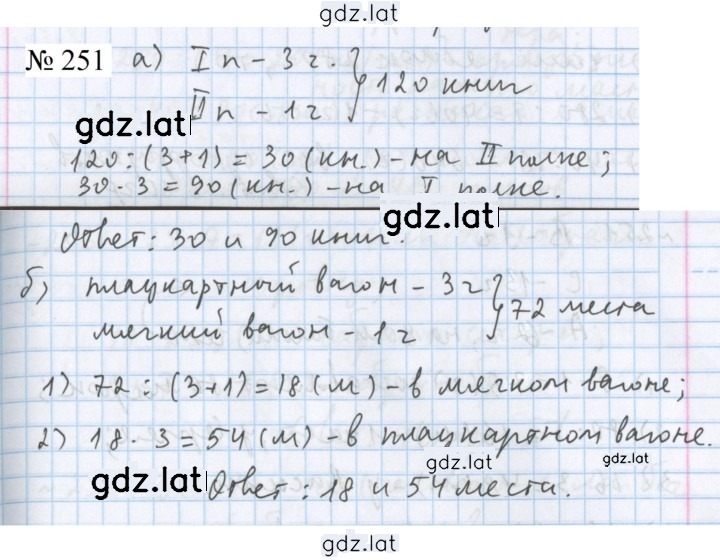 gdz.lat
№ 251 а) I п - 3 ч.
II п - 1 ч } 120 книг
gdz.lat
120 : (3+1) = 30 (кн.) - на II полке;
30 · 3 = 90 (кн.) - на I полке.
gdz.lat
Ответ: 30 и 90 книг.
б) плацкартный вагон - 3 ч
мягкий вагон - 1 ч } 72 места
1) 72 : (3+1) = 18 (м) - в мягком вагоне;
2) 18 · 3 = 54 (м) - в плацкартном вагоне.
gdz.lat gdz.lat
gdz.lat Ответ: 18 и 54 места.
gdz.lat